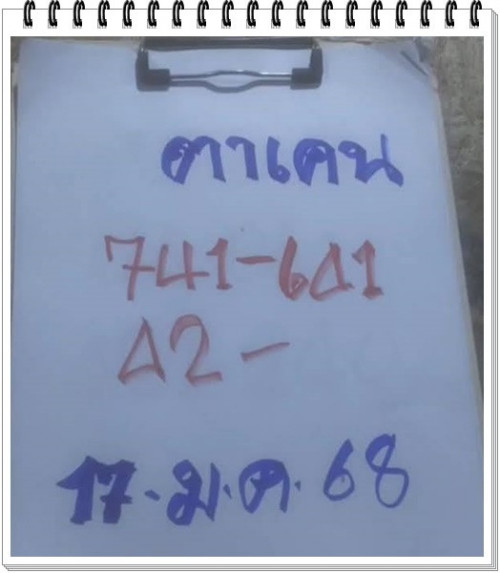 ตาเคน
741-641
42-
17.ม.ค.68